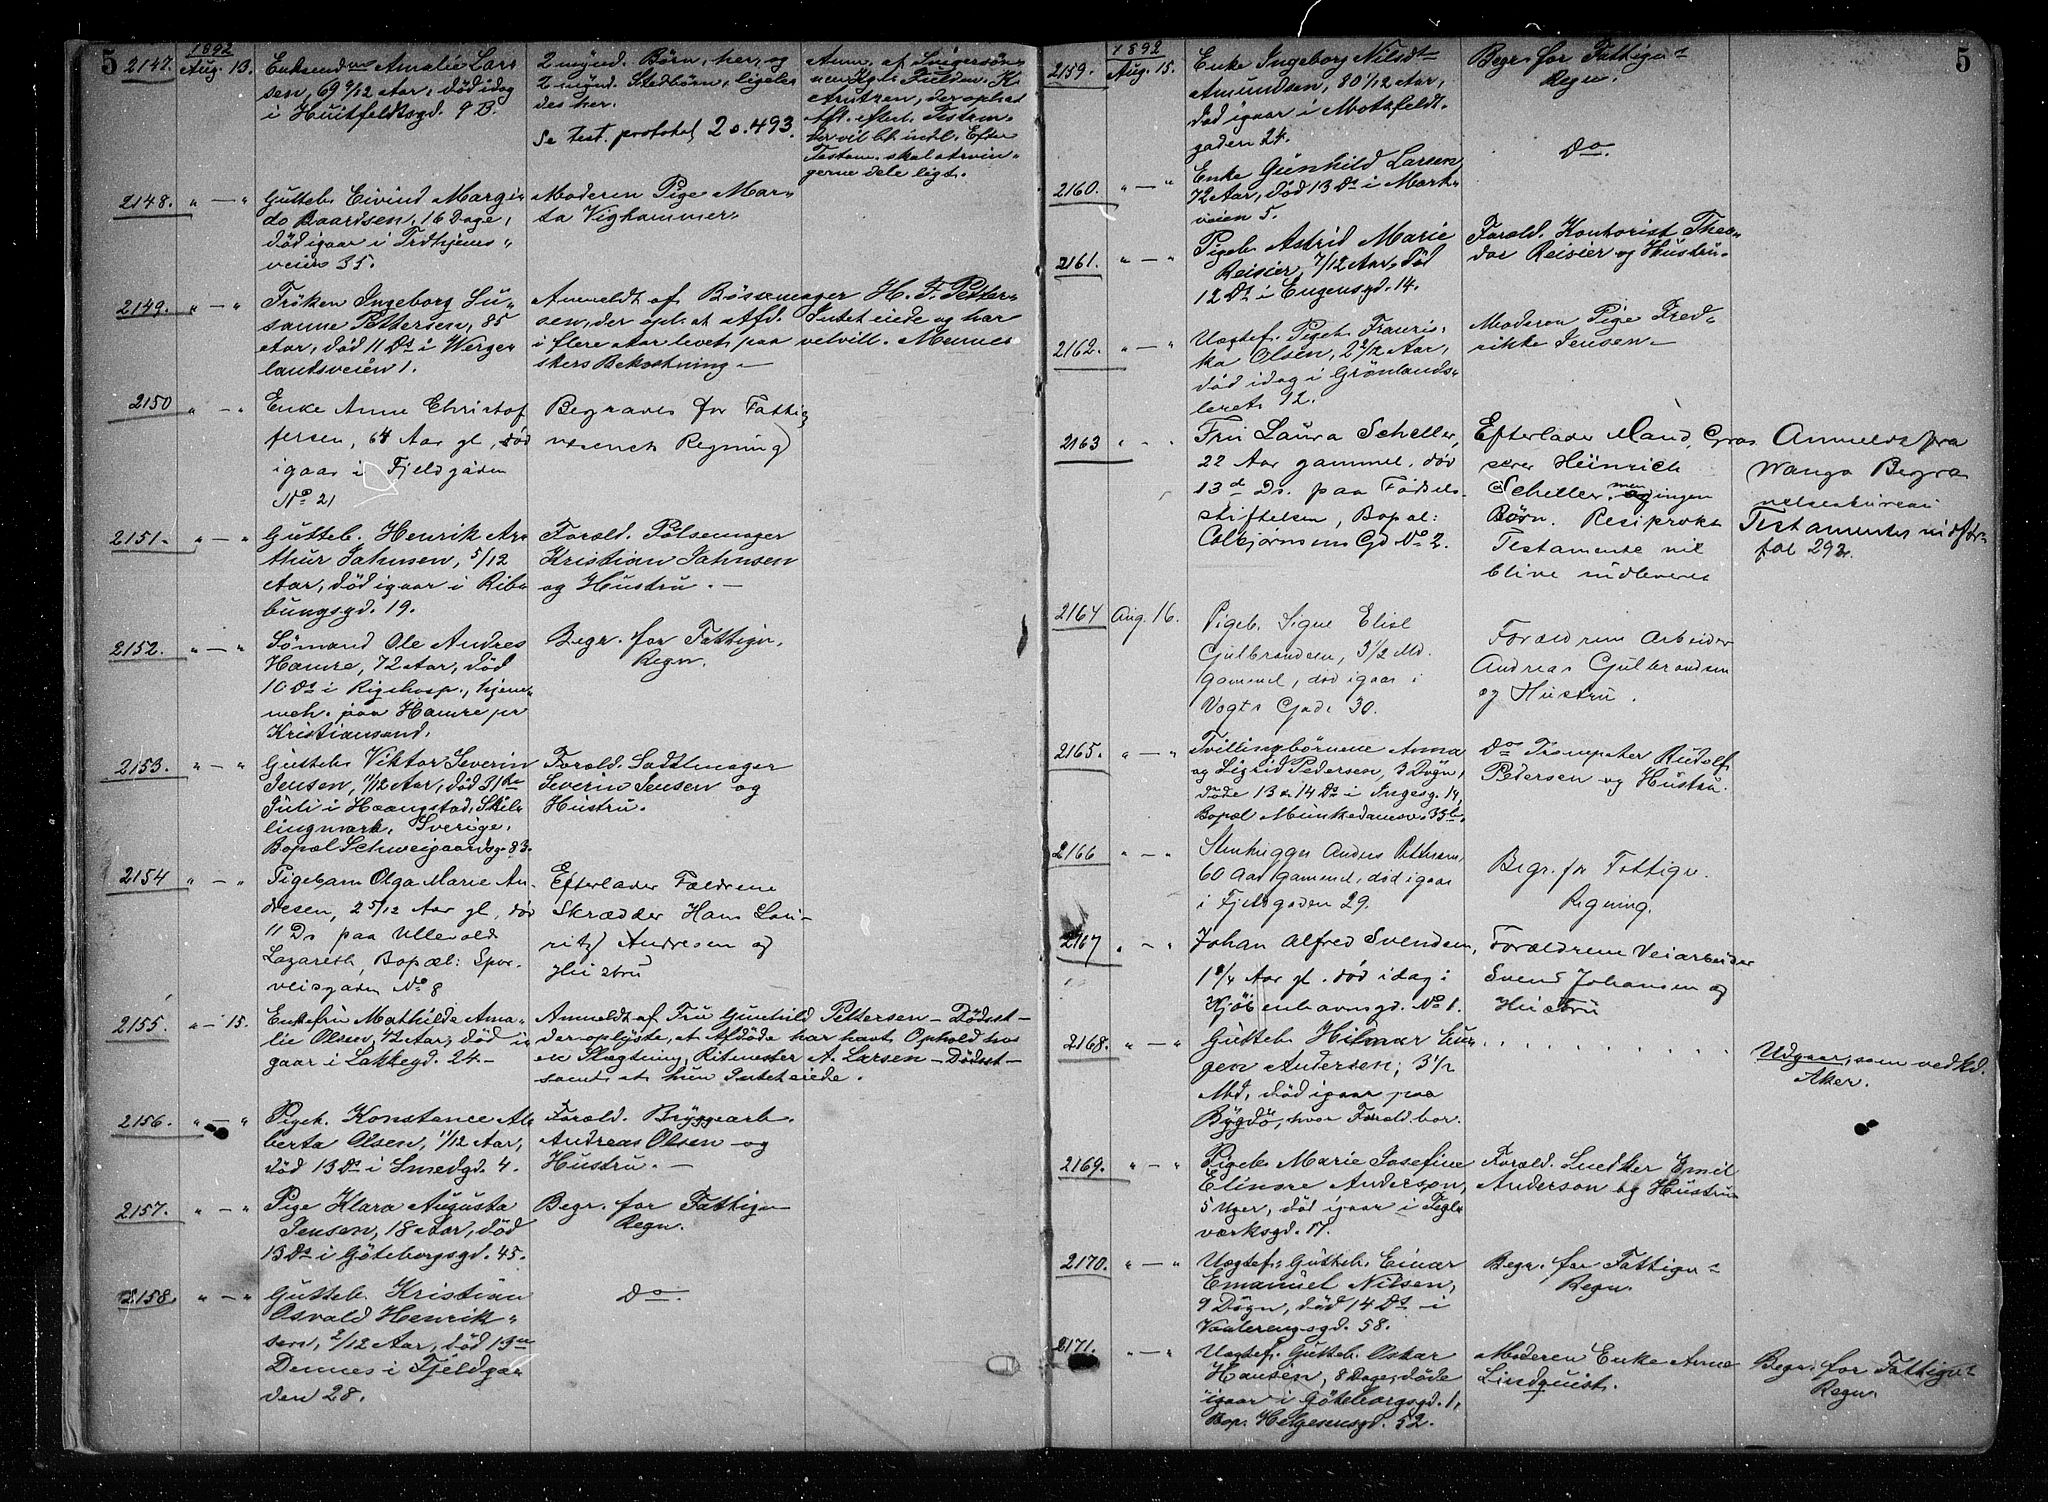 5
1892
2147. Aug. 13. Enkemdme Amalie Lar
sen, 69 9/12 Aar, død idag
i Huitfeldtsgd. 9 B.
2 mynd. Børn, her, og
2 mynd. Stedbørn, ligele
des her.
Se test. protokol 2 s. 493.
Anm. af Svigersøn
nen Kgl. Fuldm. K.
Arntzen, der oplyste at
Afd. efterl. Testam.
der vil bli indl. Efter
Testam. skal arvin-
gerne dele ligt.
2148. " — " Gutteb. Eivind Margi-
do Baardsen, 16 Dage,
død igaar i Trdhjems-
veien 35.
Moderen Pige Mar-
ta Vighammer.
2149. " — " Frøken Ingeborg Su-
sanne Pettersen, 85
Aar, død 11 Ds i Werge-
landsveien 1.
Anmeldt af Bøssemager H. F. Petter-
sen, der opl. at Afd. Intet eiede og har
i flere Aar levet paa velvill. Mennes
skers Bekostning.
2150 " — " Enke Anne Christof
fersen, 64 Aar gl, død
igaar i Fjeldgaden
No 21
Begraves for Fattig
væsenets Regning
2151. " — " Gutteb. Henrik Ar
thur Jahnsen, 5/12
Aar, død igaar i Ribe
bungsgd. 19.
Foræld. Pølsemager
Kristian Jahnsen
og Hustru. —
2152. " — " Sømand Ole Andres
Hamre, 72 Aar, død
10 Ds i Rigshosp., hjem-
meh. paa Hamre pr
Kristiansand.
Begr. for Fattigv.
Regn.
2153. " — " Gutteb. Viktor Severin
Jensen, 11/12 Aar, død 31te
Juli i Haangstad, Skil
lingmark, Sverige.
Bopæl Schweigaardsg. 83.
Foræld. Sadelmager
Severin Jensen og
Hustru.
2154 " — " Pigebarn Olga Marie An-
dresen, 2 5/12 Aar gl, død
11 Ds paa Ullevold
Lazareth, Bopæl: Spor-
veisgaden No 8
Efterlader Fældrene
Skrædder Hans Lau-
ritz Andresen og
Hustru
2155. " — 15. Enkefru Mathilde Ama-
lie Olsen, 42 Aar, død i
gaar i Lakkegd. 24.
Anmeldt af Fru Gunhild Pettersen – Dødsst –
der oplyste, at Afdøde har havt Ophold hos
en Slægtning, Ritmester A. Larsen – Dødsst –
samt at hun Intet eiede.
2156. " — " Pigeb. Konstance Al
berta Olsen, 11/12 Aar,
død 13 Ds i Smedgd. 4.
Foræld. Bryggearb.
Andreas Olsen og
Hustru. —
2157. " — " Pige Klara Augusta
Jensen, 18 Aar, død
13 Ds i Göteborgsgd. 45.
Begr. for Fattigv
Regn.
2158. " — " Gutteb. Kristian
Osvald Henrik-
sen, 2/12 Aar, død 13de
Dennes i Fjeldga-
den 28.
Do.
5
1892
2159. Aug. 15. Enke Ingeborg Nilsdt
Amundsen, 80 1/12 Aar,
død igaar i Motzfeldt-
gaden 24.
Begr. for Fattigv
Regn.
2160. " — " Enke Gunhild Larsen
72 Aar, død 13 Ds i Mark-
veien 5.
Do.
2161. " — " Pigeb. Astrid Marie
Reisier, 7/12 Aar, død
12 Ds i Eugensgd. 14.
Foræld. Kontorist Theo-
dor Reisier og Hustru.
2162. " — " Uægtef. Pigeb. Fransis-
ka Olsen, 2 2/12 Aar,
død idag i Grønlands-
leret 92.
Moderen Pige Fred-
rikke Jensen.
2163 " — " Fru Laura Scheller,
22 Aar gammel, død
13d Ds. paa Fødsels-
stiftelsen, Bopæl:
Asbjørnsens Gd No 2.
Efterlader Mand, Gros
serer Heinrich
Scheller, men ingen
Børn. Resiprokt
Testamente vil
blive indleveret
Anmeldt fra
Wangs Begra
velsesbureau
fol 292.
2164 Aug. 16. Pigeb. Signe Elise
Gulbrandsen, 3 1/2 Md.
gammel, død igaar i
Vogts Gade 30.
Forældrene Arbeider
Andreas Gulbrandsen
og Hustru.
2165. " — " Tvillingbørnene Anna
og Sigrid Pedersen, 3 Døgn,
døde 13 & 14 Ds i Ingesg. 14,
Bopæl Munkedamsv. 35b.
Do Trompeter Rudolf
Pedersen og Hustru.
2166 " — " Stenhugger Anders Pettersen,
60 Aar gammel, død igaar
i Fjeldgaden 29.
Begr. for Fattigv.
Regning.
2167 " — " Johan Alfred Svendsen,
1 1/4 Aar gl. død idag i
Kjøbenhavnsgd. No 1.
Forældrene Veiarbeider
Svend Johansen og
Hustru
2168. " — " Gutteb. Hilmar Eu-
gen Andersen, 3 1/2
Md, død igaar paa
Bygdø, hvor Foræld. bor.
. . . . . . . . . .
Udgaar, som vedkd.
Aker.
2169. " — " Pigeb. Marie Josefine
Elinore Anderson,
5 Uger, død igaar i Tegl
værksgd. 17.
Foræld. Snedker Emil
Anderson og Hustru
2170. " — " Uægtef. Gutteb. Einar
Emanuel Nilsen,
9 Døgn, død 14 Ds i
Vaalerengsgd. 58.
Begr. for Fattigv
Regn.
2171. " — " Uægtef. Gutteb. Oskar
Hansen, 8 Dage, døde
igaar i Göteborgsgd. 1,
Bop. Helgesensgd. 52.
Moderen Enke Anne
Lindquist.
Begr. for Fattigv
Regn.